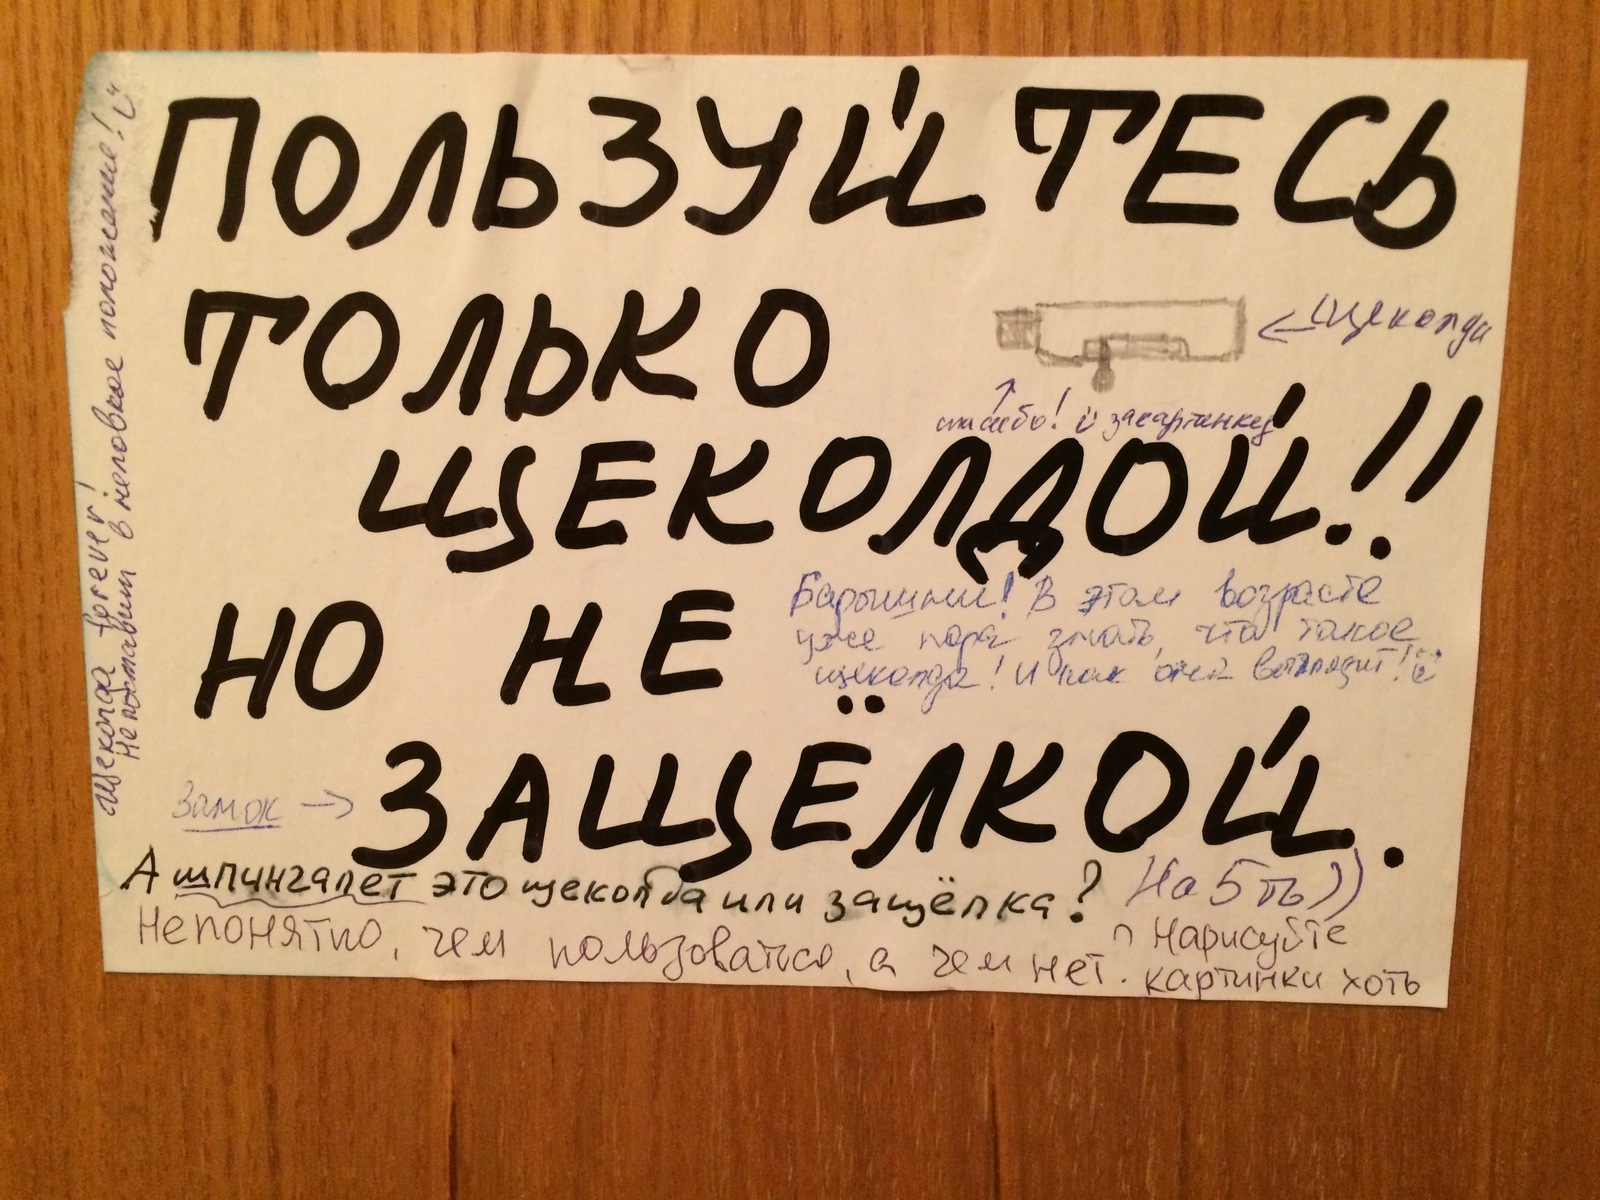 ПОЛЬЗУЙТЕСЬ
ТОЛЬКО
← Щеколда
↑
спасибо! за картинку
ЩЕКОЛДОЙ!!
НО НЕ
Барышни! В этом возрасте
уже пора знать, что такое
щеколда! И как она выглядит!
Замок →
ЗАЩЁЛКОЙ.
А шпингалет это щеколда или защёлка?
На 5ть))
Непонятно, чем пользоваться, а чем нет.
Нарисуйте
картинки хоть
Щеколда forever!
Не поставит в неловкое положение!